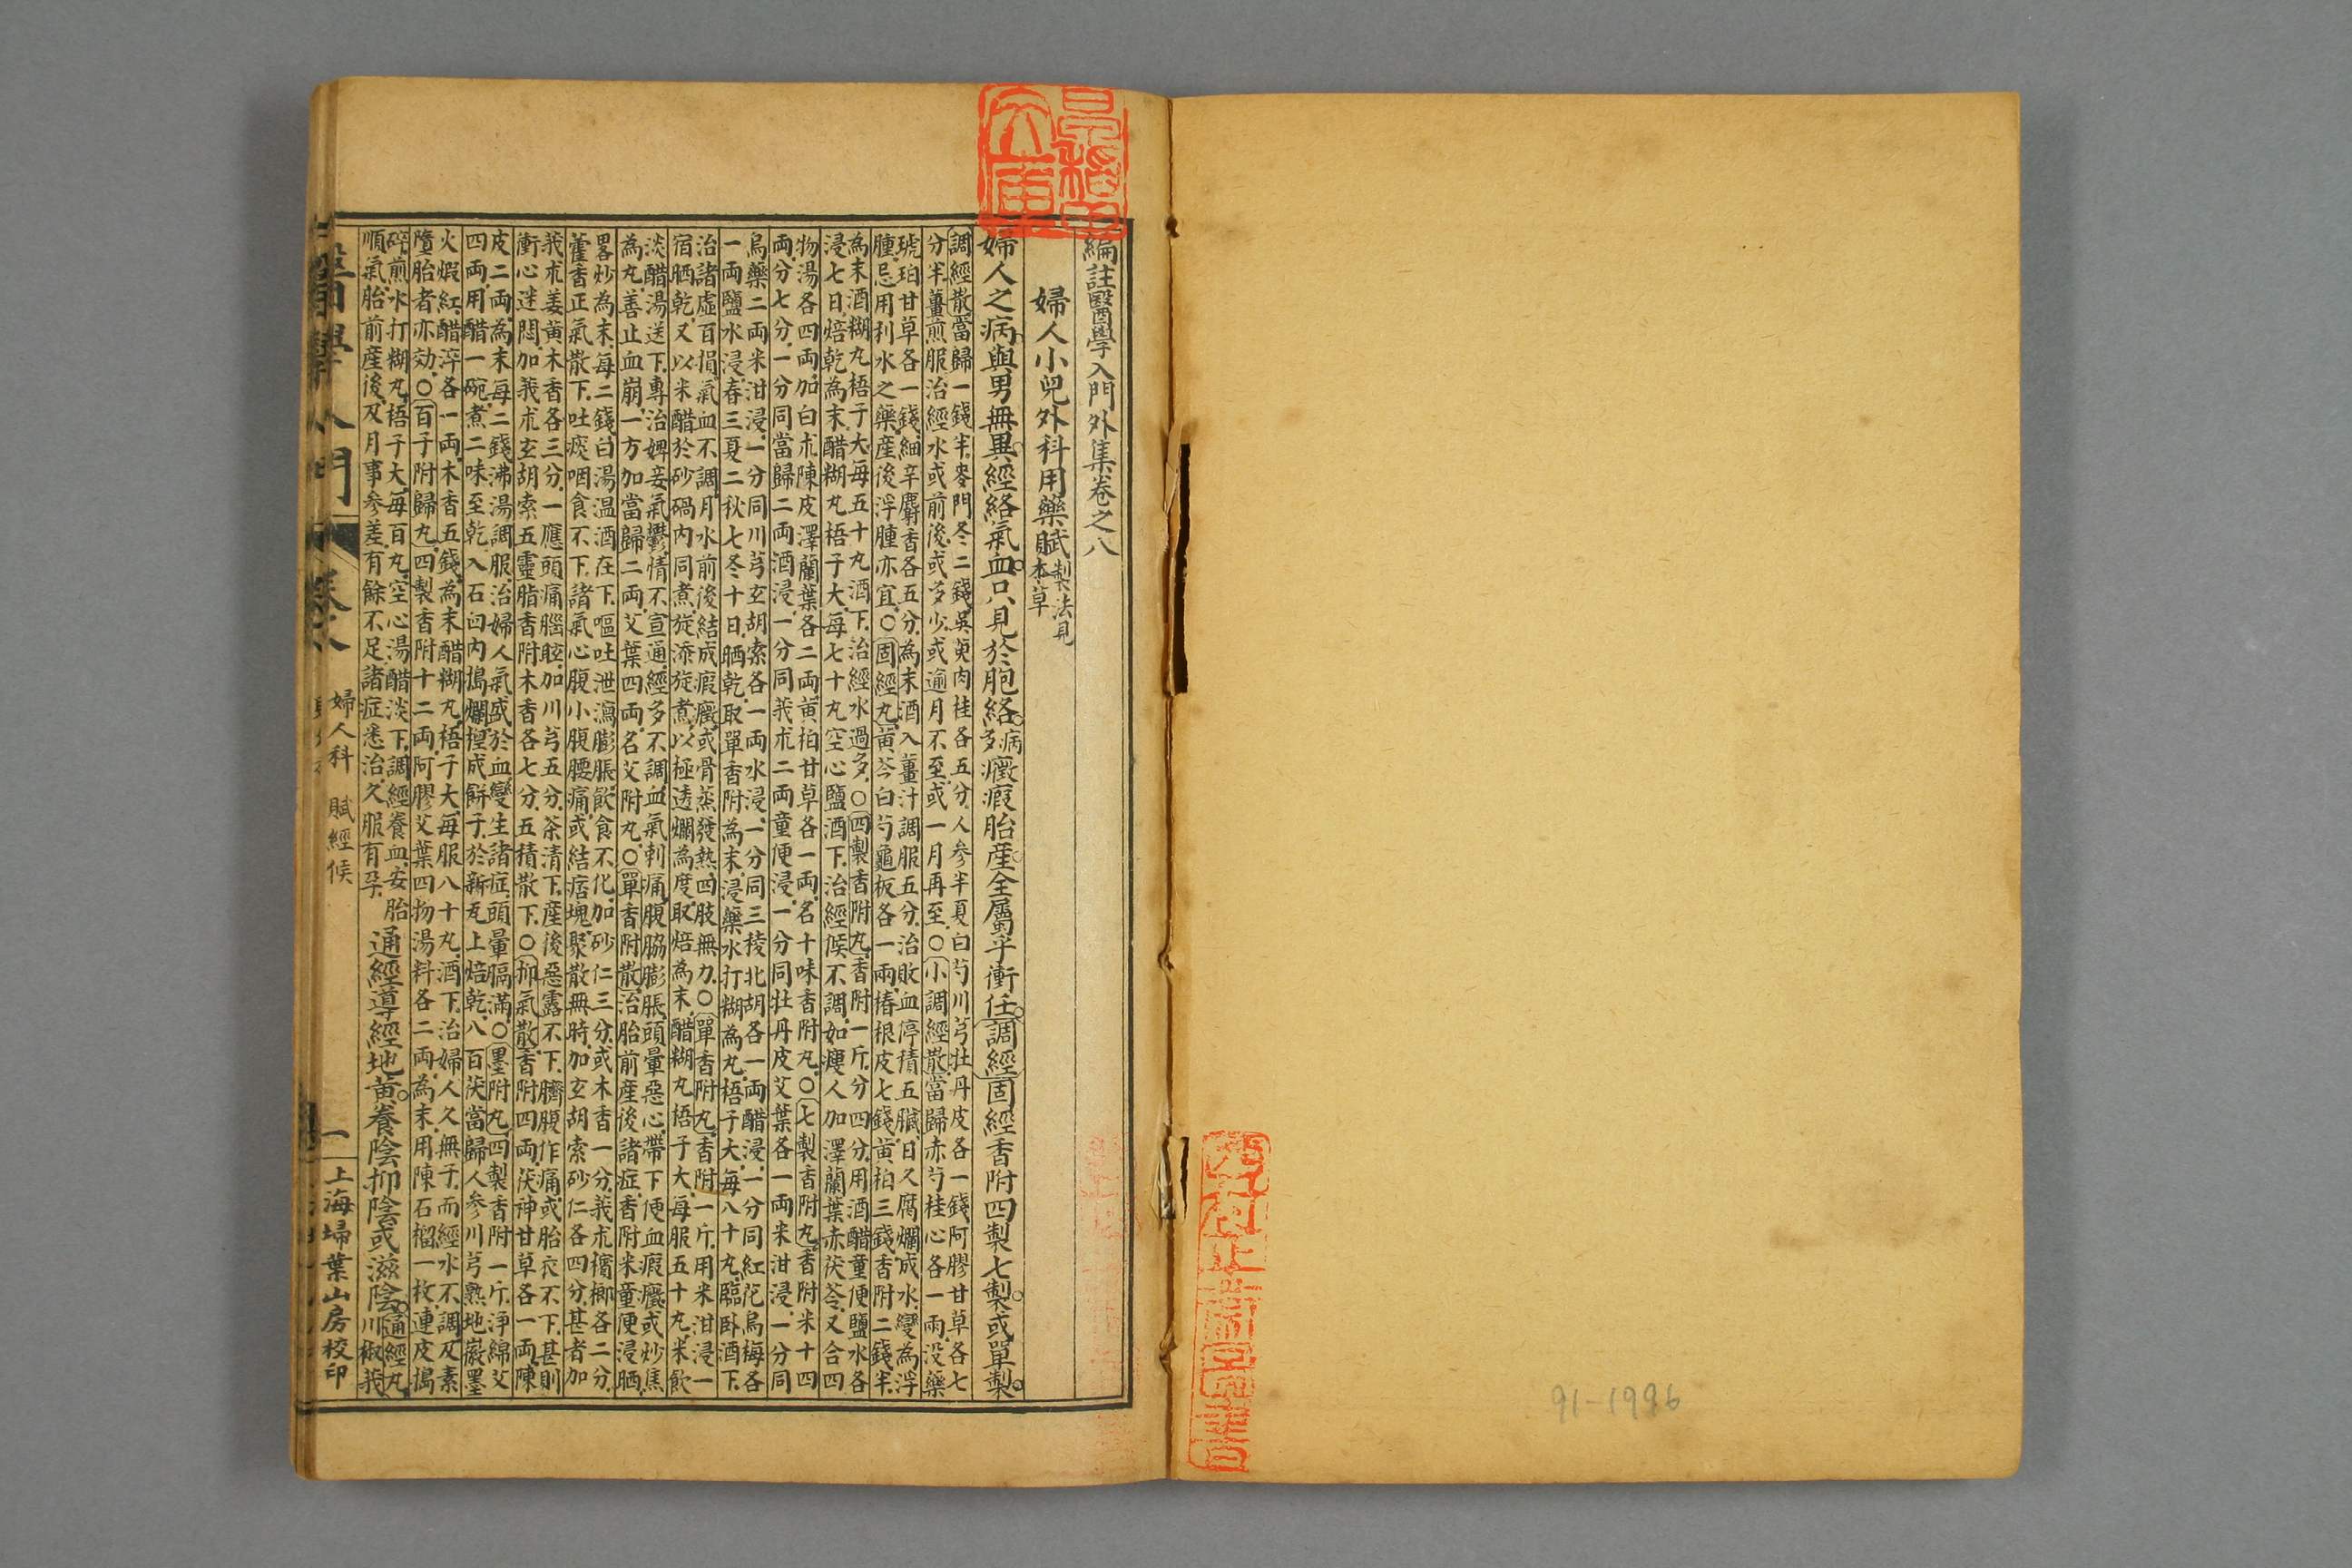 編註醫學入門外集卷之八
婦人小兒外科用藥賦製法見
本草
婦人之病與男無異經絡氣血只見於胞絡多病癥瘕胎產全屬乎衝任調經固經香附四製七製或單製
調經散當歸一錢半麥門冬二錢吳萸肉桂各五分人參半夏白芍川芎牡丹皮各一錢阿膠甘草各七
分半薑煎服治經水或前後或多少或逾月不至或一月再至〇小調經散當歸赤芍桂心各一兩沒藥
琥珀甘草各一錢細辛麝香各五分為末酒入薑汁調服五分治敗血停積五臟日久腐爛成水變為浮
腫忌用利水之藥產後浮腫亦宜〇固經丸黃芩白芍龜板各一兩椿根皮七錢黃柏三錢香附二錢半
為末酒糊丸梧子大每五十丸酒下治經水過多〇四製香附丸香附一斤分四分用酒醋童便鹽水各
浸七日焙乾為末醋糊丸梧子大每七十丸空心鹽酒下治經候不調如瘦人加澤蘭葉赤茯苓又合四
物湯各四兩加白朮陳皮澤蘭葉各二兩黃柏甘草各一兩名十味香附丸〇七製香附丸香附米十四
兩分七分一分同當歸二兩酒浸一分同莪朮二兩童便浸一分同牡丹皮艾葉各一兩米泔浸一分同
烏藥二兩米泔浸一分同川芎玄胡索各一兩水浸一分同三稜北胡各一兩醋浸一分同紅花烏梅各
一兩鹽水浸春三夏二秋七冬十日晒乾取單香附為末浸藥水打糊為丸梧子大每八十丸臨臥酒下
治諸虛百損氣血不調月水前後結成瘕癥或骨蒸發熱四肢無力〇單香附丸香附一斤用米泔浸一
宿晒乾又以米醋於砂鍋內同煮旋添旋煮以極透爛為度取焙為末醋糊丸梧子大每服五十丸米飲
淡醋湯送下專治婢妾氣鬱情不宣通經多不調血氣刺痛腹脇膨脹頭暈惡心帶下便血瘕癥或炒焦
為丸善止血崩一方加當歸二兩艾葉四兩名艾附丸〇單香附散治胎前產後諸症香附米童便浸晒
畧炒為末每二錢白湯溫酒在下嘔吐泄瀉膨脹飲食不化加砂仁三分或木香一分莪朮檳榔各二分
藿香正氣散下吐痰咽食不下諸氣心腹小腹腰痛或結痞塊聚散無時加玄胡索砂仁各四分甚者加
莪朮姜黃木香各三分一應頭痛腦眩加川芎五分茶清下產後惡露不下臍腹作痛或胎衣不下甚則
衝心迷悶加莪朮玄胡索五靈脂香附木香各七分五積散下〇抑氣散香附四兩茯神甘草各一兩陳
皮二兩為末每二錢沸湯調服治婦人氣盛於血變生諸症頭暈膈滿〇墨附丸四製香附一斤淨綿艾
四兩用醋一碗煮二味至乾入石臼內搗爛捏成餅子於新瓦上焙乾八百茯當歸人參川芎熟地徽墨
火煆紅醋淬各一兩木香五錢為末醋糊丸梧子大每服八十丸酒下治婦人久無子而經水不調及素
墮胎者亦効〇百子附歸丸四製香附十二兩阿膠艾葉四物湯料各二兩為末用陳石榴一枚連皮搗
碎煎水打糊丸梧子大每百丸空心湯醋淡下調經養血安胎
順氣胎前產後及月事參差有餘不足諸症悉治久服有孕
通經導經地黃養陰抑陰或滋陰通經丸
川椒莪
醫學入門
卷八
婦人科 賦經候
一
上海埽葉山房校印
91-1996